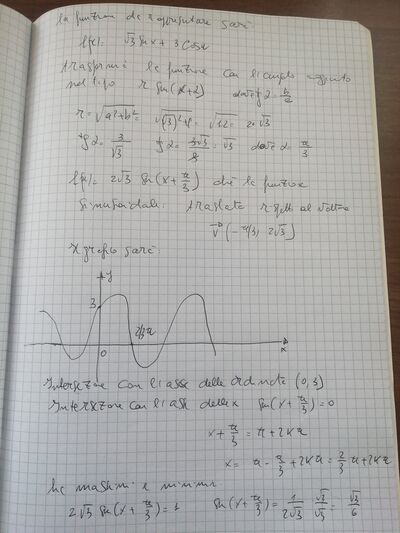 la funzione da rappresentare sarà
f(x)= √3 sin x + 3 cos x
trasformo la funzione con l'angolo aggiunto
nel tipo r sin(x+α) dove tg α = b/a
r = √(a²+b²) = √((√3)²+9) = √12 = 2·√3
tg α = 3/√3 tg α = 3√3/3 = √3 dove α = π/3
f(x)= 2√3 sin(x + π/3) che è la funzione
sinusoidale traslata rispetto al vettore
v(-π/3, 2√3)
Il grafico sarà:
y
3
0
2/3π
x
Intersezione con l'asse delle ordinate (0,3)
Intersezione con l'asse delle x sin(x + π/3)=0
x + π/3 = π + 2Kπ
x = π - π/3 + 2Kπ = 2/3 π + 2Kπ
ha massimi e minimi
2√3 sin(x + π/3) = 1 sin(x + π/3) = 1/2√3 √3/√3 = √3/6